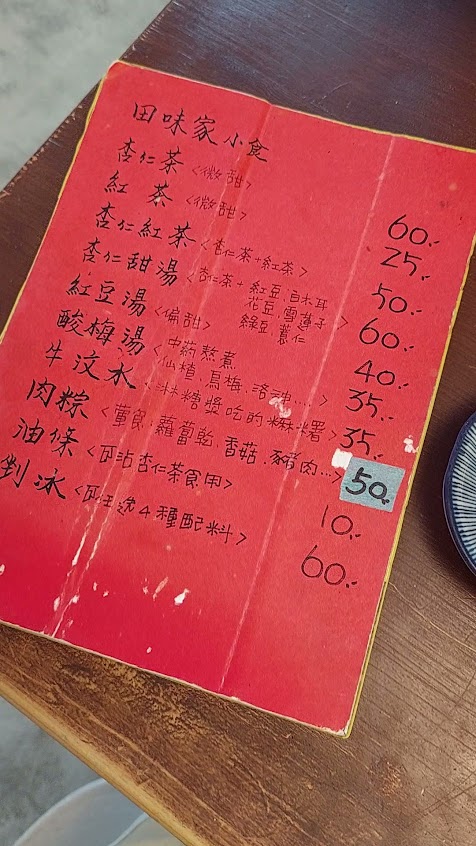 田味家小食
杏仁茶<微甜> 60.-
紅 茶<微甜> 25.-
杏仁紅茶<杏仁茶+紅茶> 50.-
杏仁甜湯<杏仁茶+紅豆.白木耳
花豆.雪蓮子
綠豆.薏仁> 60.-
紅豆湯<偏甜> 40.-
酸梅湯<中藥熬煮
仙楂.烏梅.洛神...> 35.-
牛汶水<淋糖漿吃的麻糬> 35.-
肉粽<葷食.蘿蔔乾.香菇.豬肉...> 50.-
油條<可沾杏仁茶食用> 10.-
剉冰<可任選4種配料> 60.-